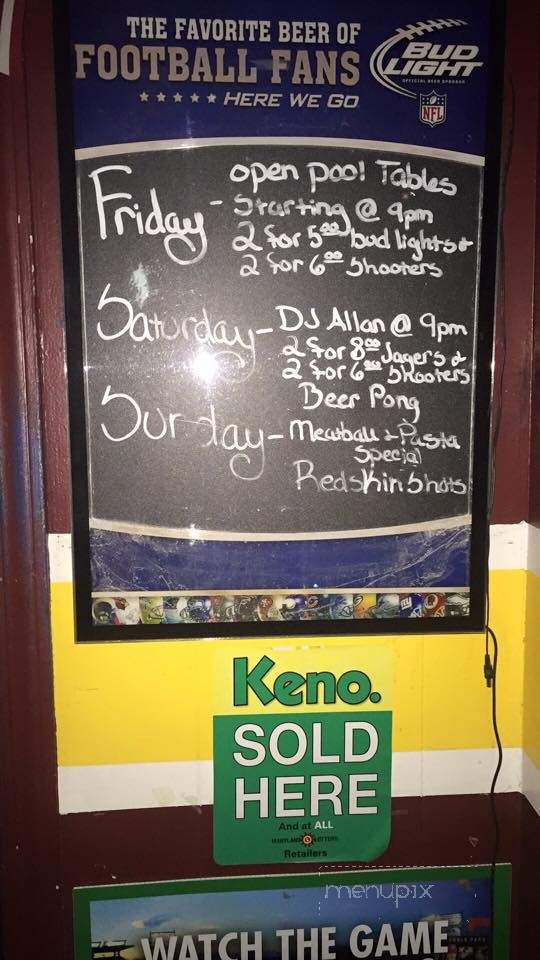 THE FAVORITE BEER OF
FOOTBALL FANS
HERE WE GO
BUD LIGHT
OFFICIAL BEER SPONSOR
NFL
Friday - open pool Tables
Starting @ 9pm
2 for 5⁰⁰ bud lights &
2 for 6⁰⁰ Shooters
Saturday - DJ Allan @ 9pm
2 for 8⁰⁰ Jagers &
2 for 6⁰⁰ Shooters
Beer Pong
Sunday - Meatball & Pasta
Special
Redskin Shots
Keno.
SOLD
HERE
And at ALL
MARYLAND LOTTERY
Retailers
menupix
WATCH THE GAME